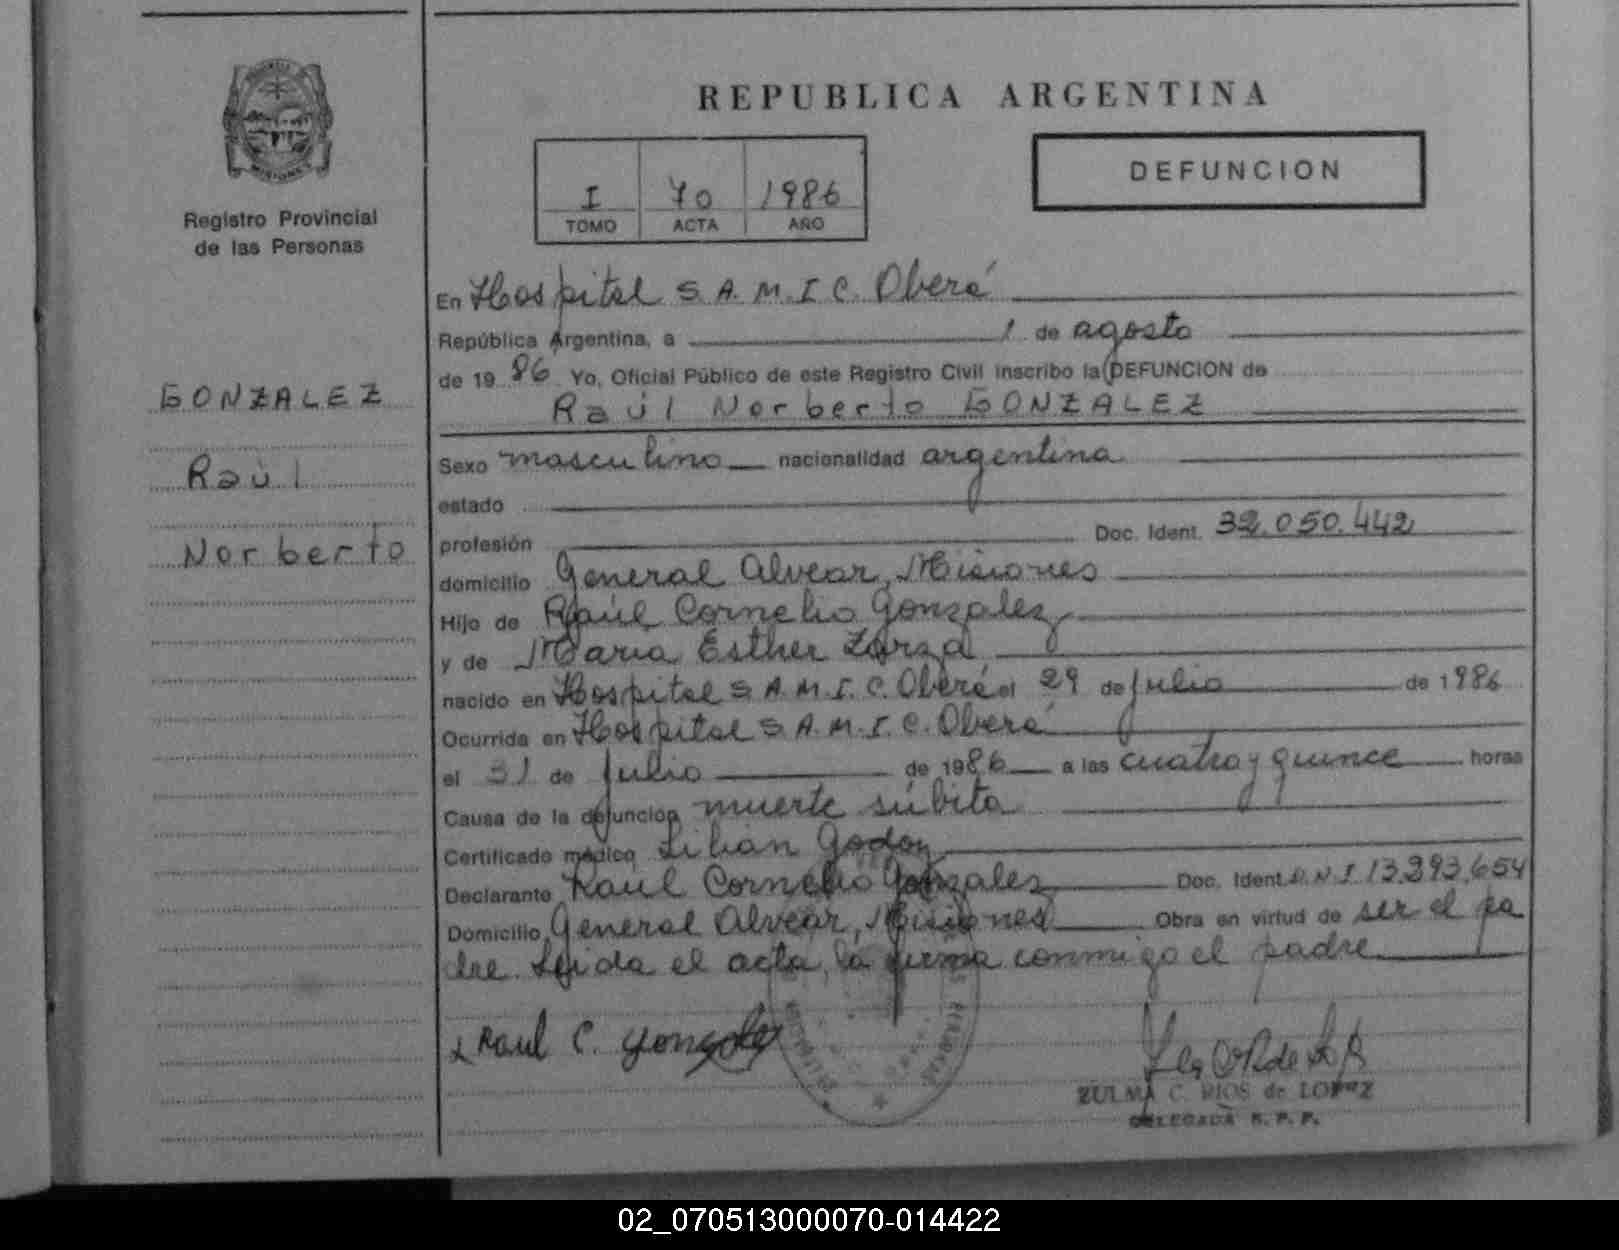 REPUBLICA ARGENTINA
PROVINCIA DE
MISIONES
Registro Provincial
de las Personas
I 70 1986
TOMO ACTA AÑO
DEFUNCION
GONZALEZ
Raúl
Norberto
En Hospital S.A.M.I.C. Oberá
República Argentina, a 1 de agosto
de 1986 Yo, Oficial Público de este Registro Civil inscribo la DEFUNCION de
Raúl Norberto GONZALEZ
Sexo masculino nacionalidad argentina
estado
profesión Doc. Ident. 32.050.442
domicilio General Alvear, Misiones
Hijo de Raúl Cornelio Gonzalez
y de Maria Esther Zarza
nacido en Hospital S.A.M.I.C. Oberá el 29 de julio de 1986
Ocurrida en Hospital S.A.M.I.C. Oberá
el 31 de julio de 1986 a las cuatro y quince horas
Causa de la defunción muerte súbita
Certificado médico Lilian Godoy
Declarante Raúl Cornelio Gonzalez Doc. Ident. D.N.I. 13.393.654
Domicilio General Alvear, Misiones Obra en virtud de ser el pa
dre. Leida el acta, la firma conmigo el padre
x Raul C. Gonzalez
ZULMA C. RIOS de LOPEZ
DELEGADA R.P.P.
02_070513000070-014422